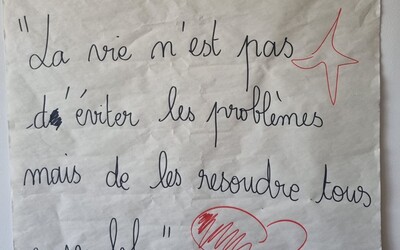 "La vie n'est pas
d'éviter les problèmes
mais de les resoudre tous